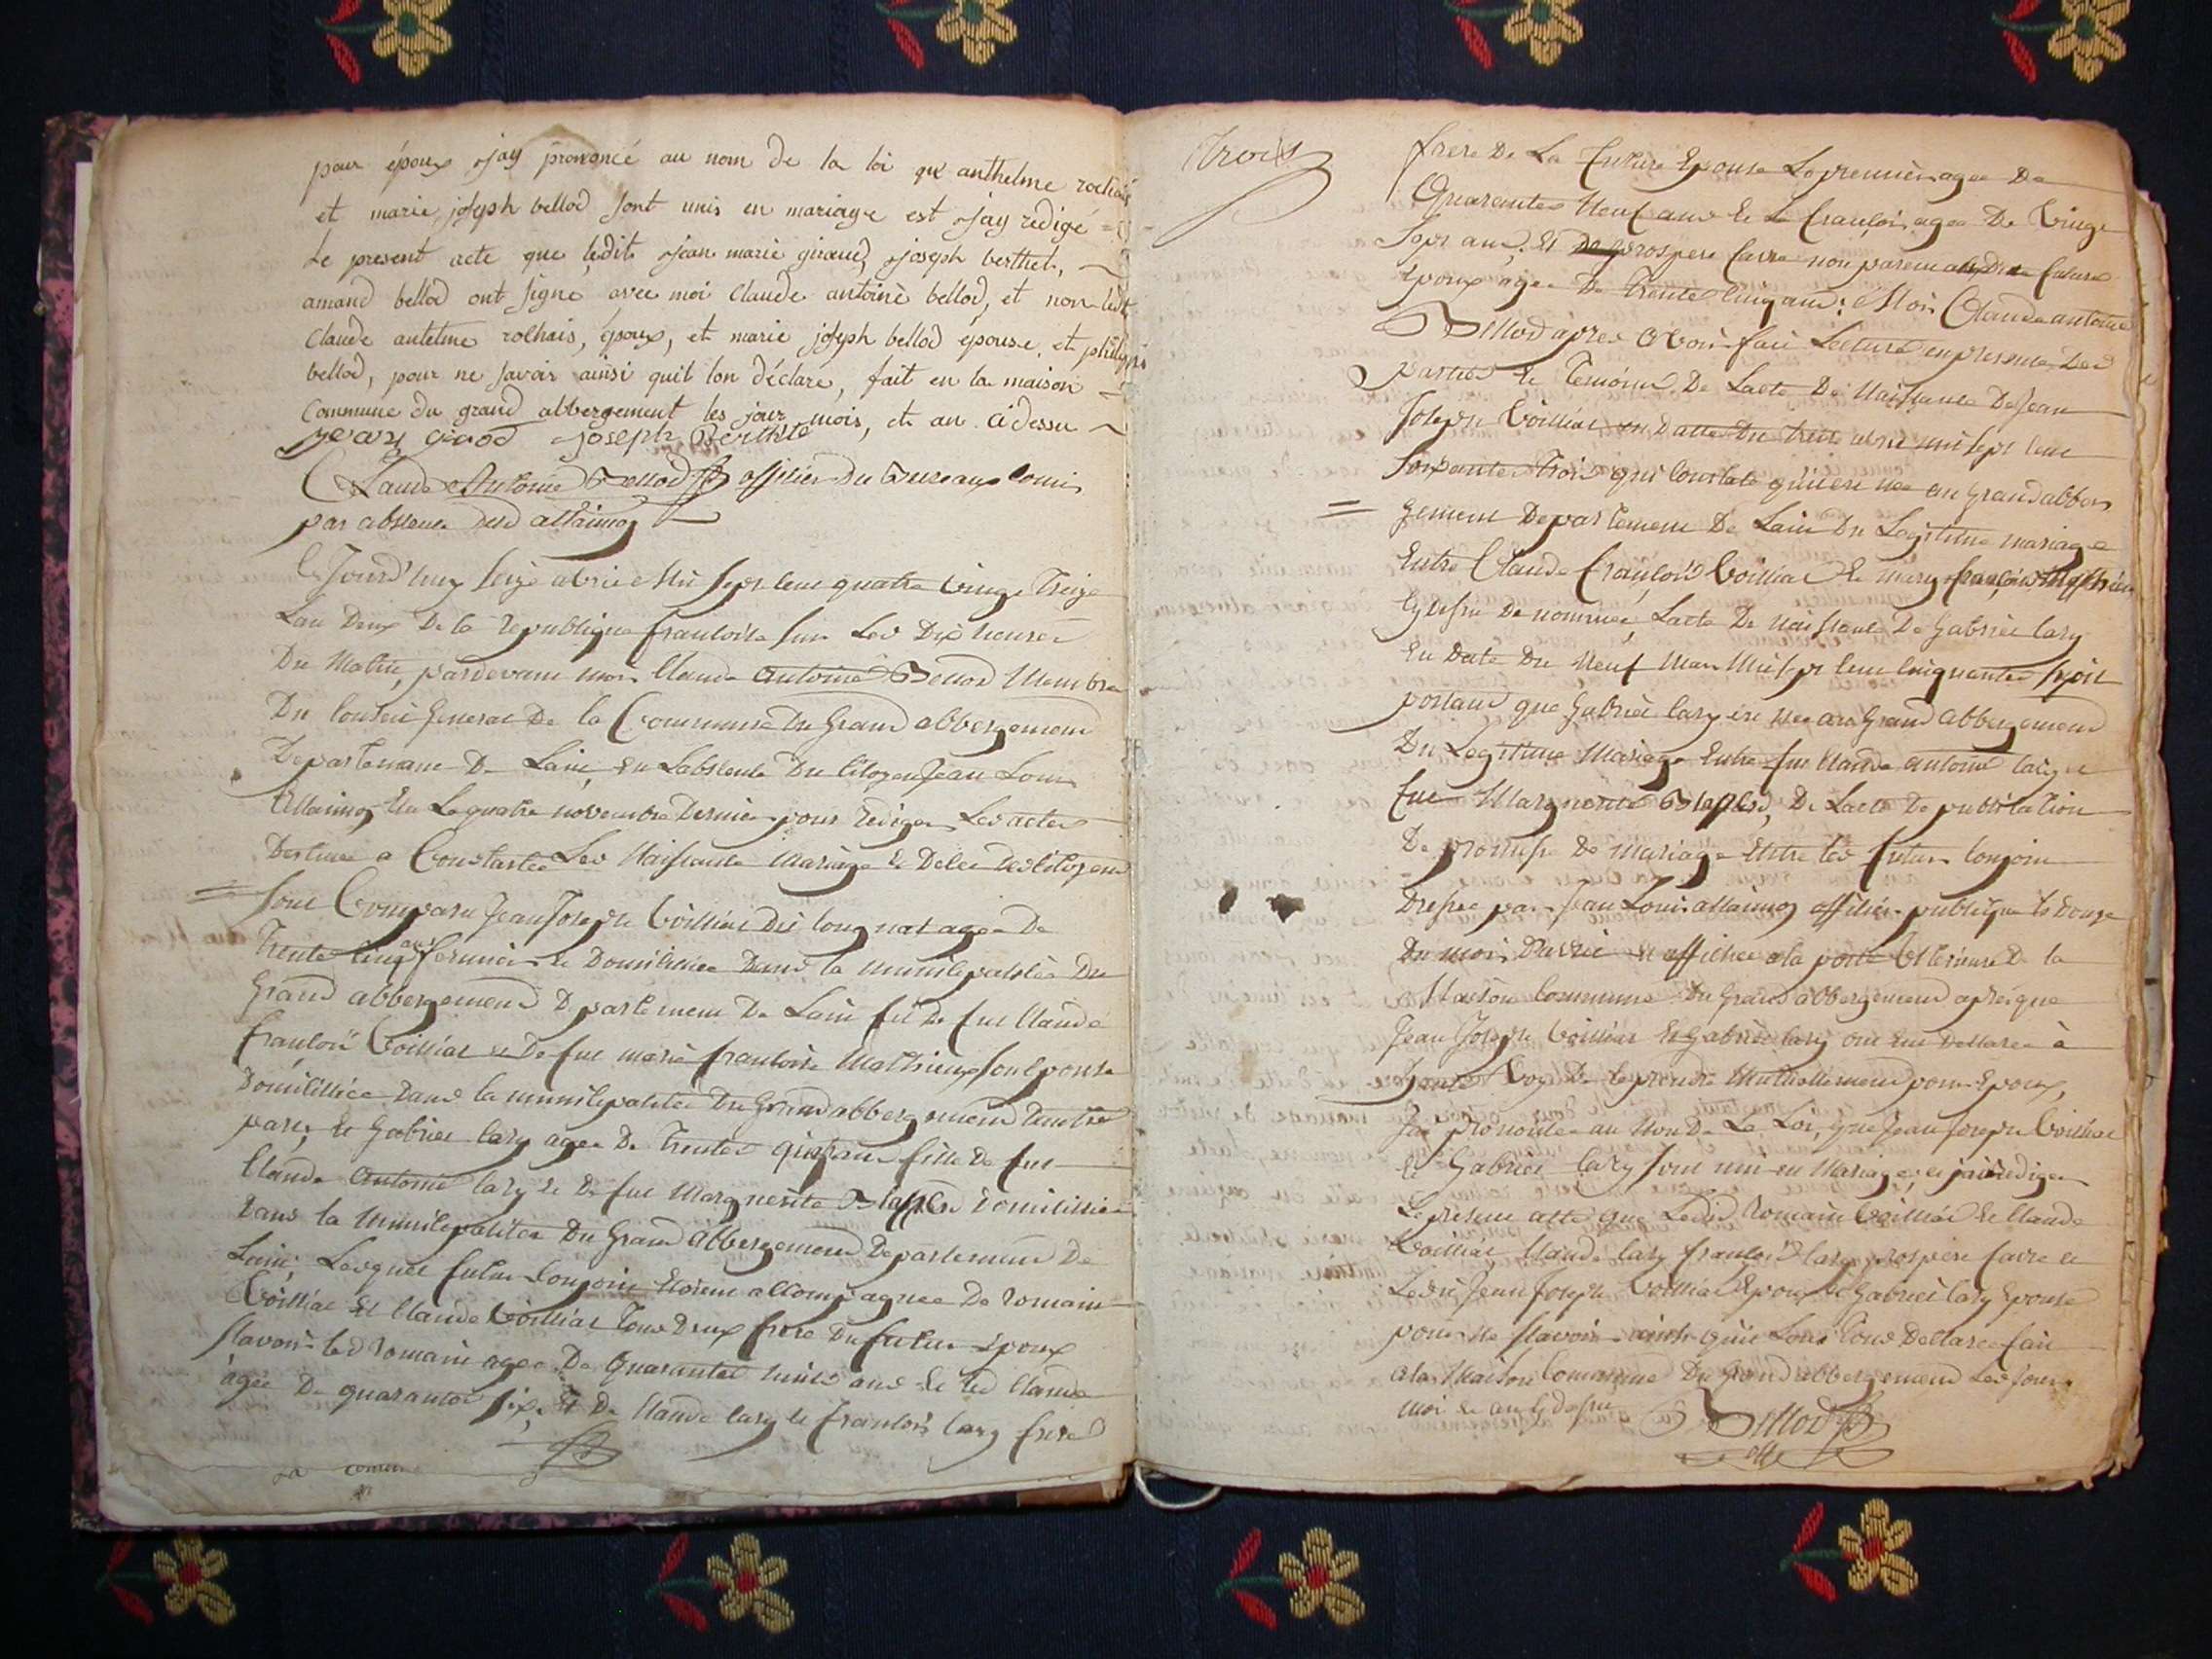 pour époux, jay prononcé au nom de la loi qu' anthelme rolhais
et marie joseph bellod sont unis en mariage est jay redigé =
Le present acte que ledit jean marie giraud, joseph berthet,
amand bellod ont signe avec moi Claude antoine bellod, et non ledt
Claude antelme rolhais, époux, et marie joseph bellod épouse, et philippe
bellod, pour ne savoir ainsi quil lon déclaré, fait en la maison
Commune du grand abbergement les jour mois, et an ci dessu
jean girod joseph Berthet
Claude Antoine Bellod officier Du Bureaux Comis
par absence dud allaimoz
Ce Jourd'huy seize avrie Mil sept cent quatre vingt Treize
Lan Deux De la republique francoise sur Les Dix heures
Du Matin, pardevant moi Claude antoine Bellod Membre
Du Conseil general De la Commune Du Grand abbergement
Departemant De Lain, en Labsence Du Citoyen Jean Louis
Allaimoz Elu Le quatre novembre Dernier pour rediger Les actes
Destinee a Constatee Les Naissance Mariage et Decee Des Citoyens
= Sont Comparu Jean Joseph Voilliat Dit Cougnat agee De
Trente Cinq ans fermier et Domicilliee Dans la municipalitée Du
Grand abbergement Departement De Lain fil de fue Claude
francois Voilliat et De fue marie francoise Mathieux son Epouse
Domicilliée Dans la municipalitee Du Grand abbergement Dautre
part, et Gabriel lary agee De Trente ans fille De fue
Claude Antoine lary et De fue Marguerite Domicilliee
Dans la Municipalitee Du Grand abbergement Departement De
Lain; Lesquel futur Conjoin Etoient accompagnee De romain
Voilliat Et Claude Voilliat Tous Deux frere Du futur époux
Scavoir led romain agee De quarante huit ans et led Claude
agée De quarante six, Et De Claude lary et francois lary frere
La comun
Trois
frere De La future Epouse Le premier agee De
Quarante Neuf ans et Le francois agee De Vingt
Sept ans, Et prosper favre non parent future
époux agee De Trente Cinq ans: Moi Claude antoine
Bellod apres avoir fait Lecture en presence Des
parties et Temoins De Lacte De Naissance De Jean
Joseph Voilliat en Datte Du Treize avrie mil sept cent
Soixante Trois qui Constate quil est nee au Grand abber
= gement Departement De Lain Du Legitime mariage
Entre Claude francois Voilliat et mary francoise Mathieux
Cy dessu De nommée, Lacte De naissance De Gabriel lary
En Date Du Neuf Mars Mil sept cent Cinquante
portant que Gabriel lary est nee au Grand abbergement
Du Legitime Mariage Entre fue Claude antoine lary et
fue Marguerite De Lacte De publication
De promesse De mariage Entre les futur Conjoin
Dressee par Jean Louis allaimoz officier publique le Douze
Du mois Davrie et affichee a la porte Exterieure De la
Maison Commune Du Grand abbergement apres que
Jean Joseph Voilliat Et Gabriel lary ont eue Declaree à
haute Voix De se prendre Mutuellement pour Epoux,
Jai prononcee au Nom De La Loi, que Jean Joseph Voilliat
et Gabriel lary sont uni en Mariage, et jai rediger
Le present acte que Ledit Romain Voilliat et Claude
Voilliat Claude lary francois lary prosper favre et
Ledit Jean Joseph Voilliat Epoux et Gabriel lary Epouse
pour ne scavoir ainsi quil Lont tous Declaree fait
a la Maison Commune Du Grand abbergement Les Jour
moi et an Cy Dessu Bellod
off